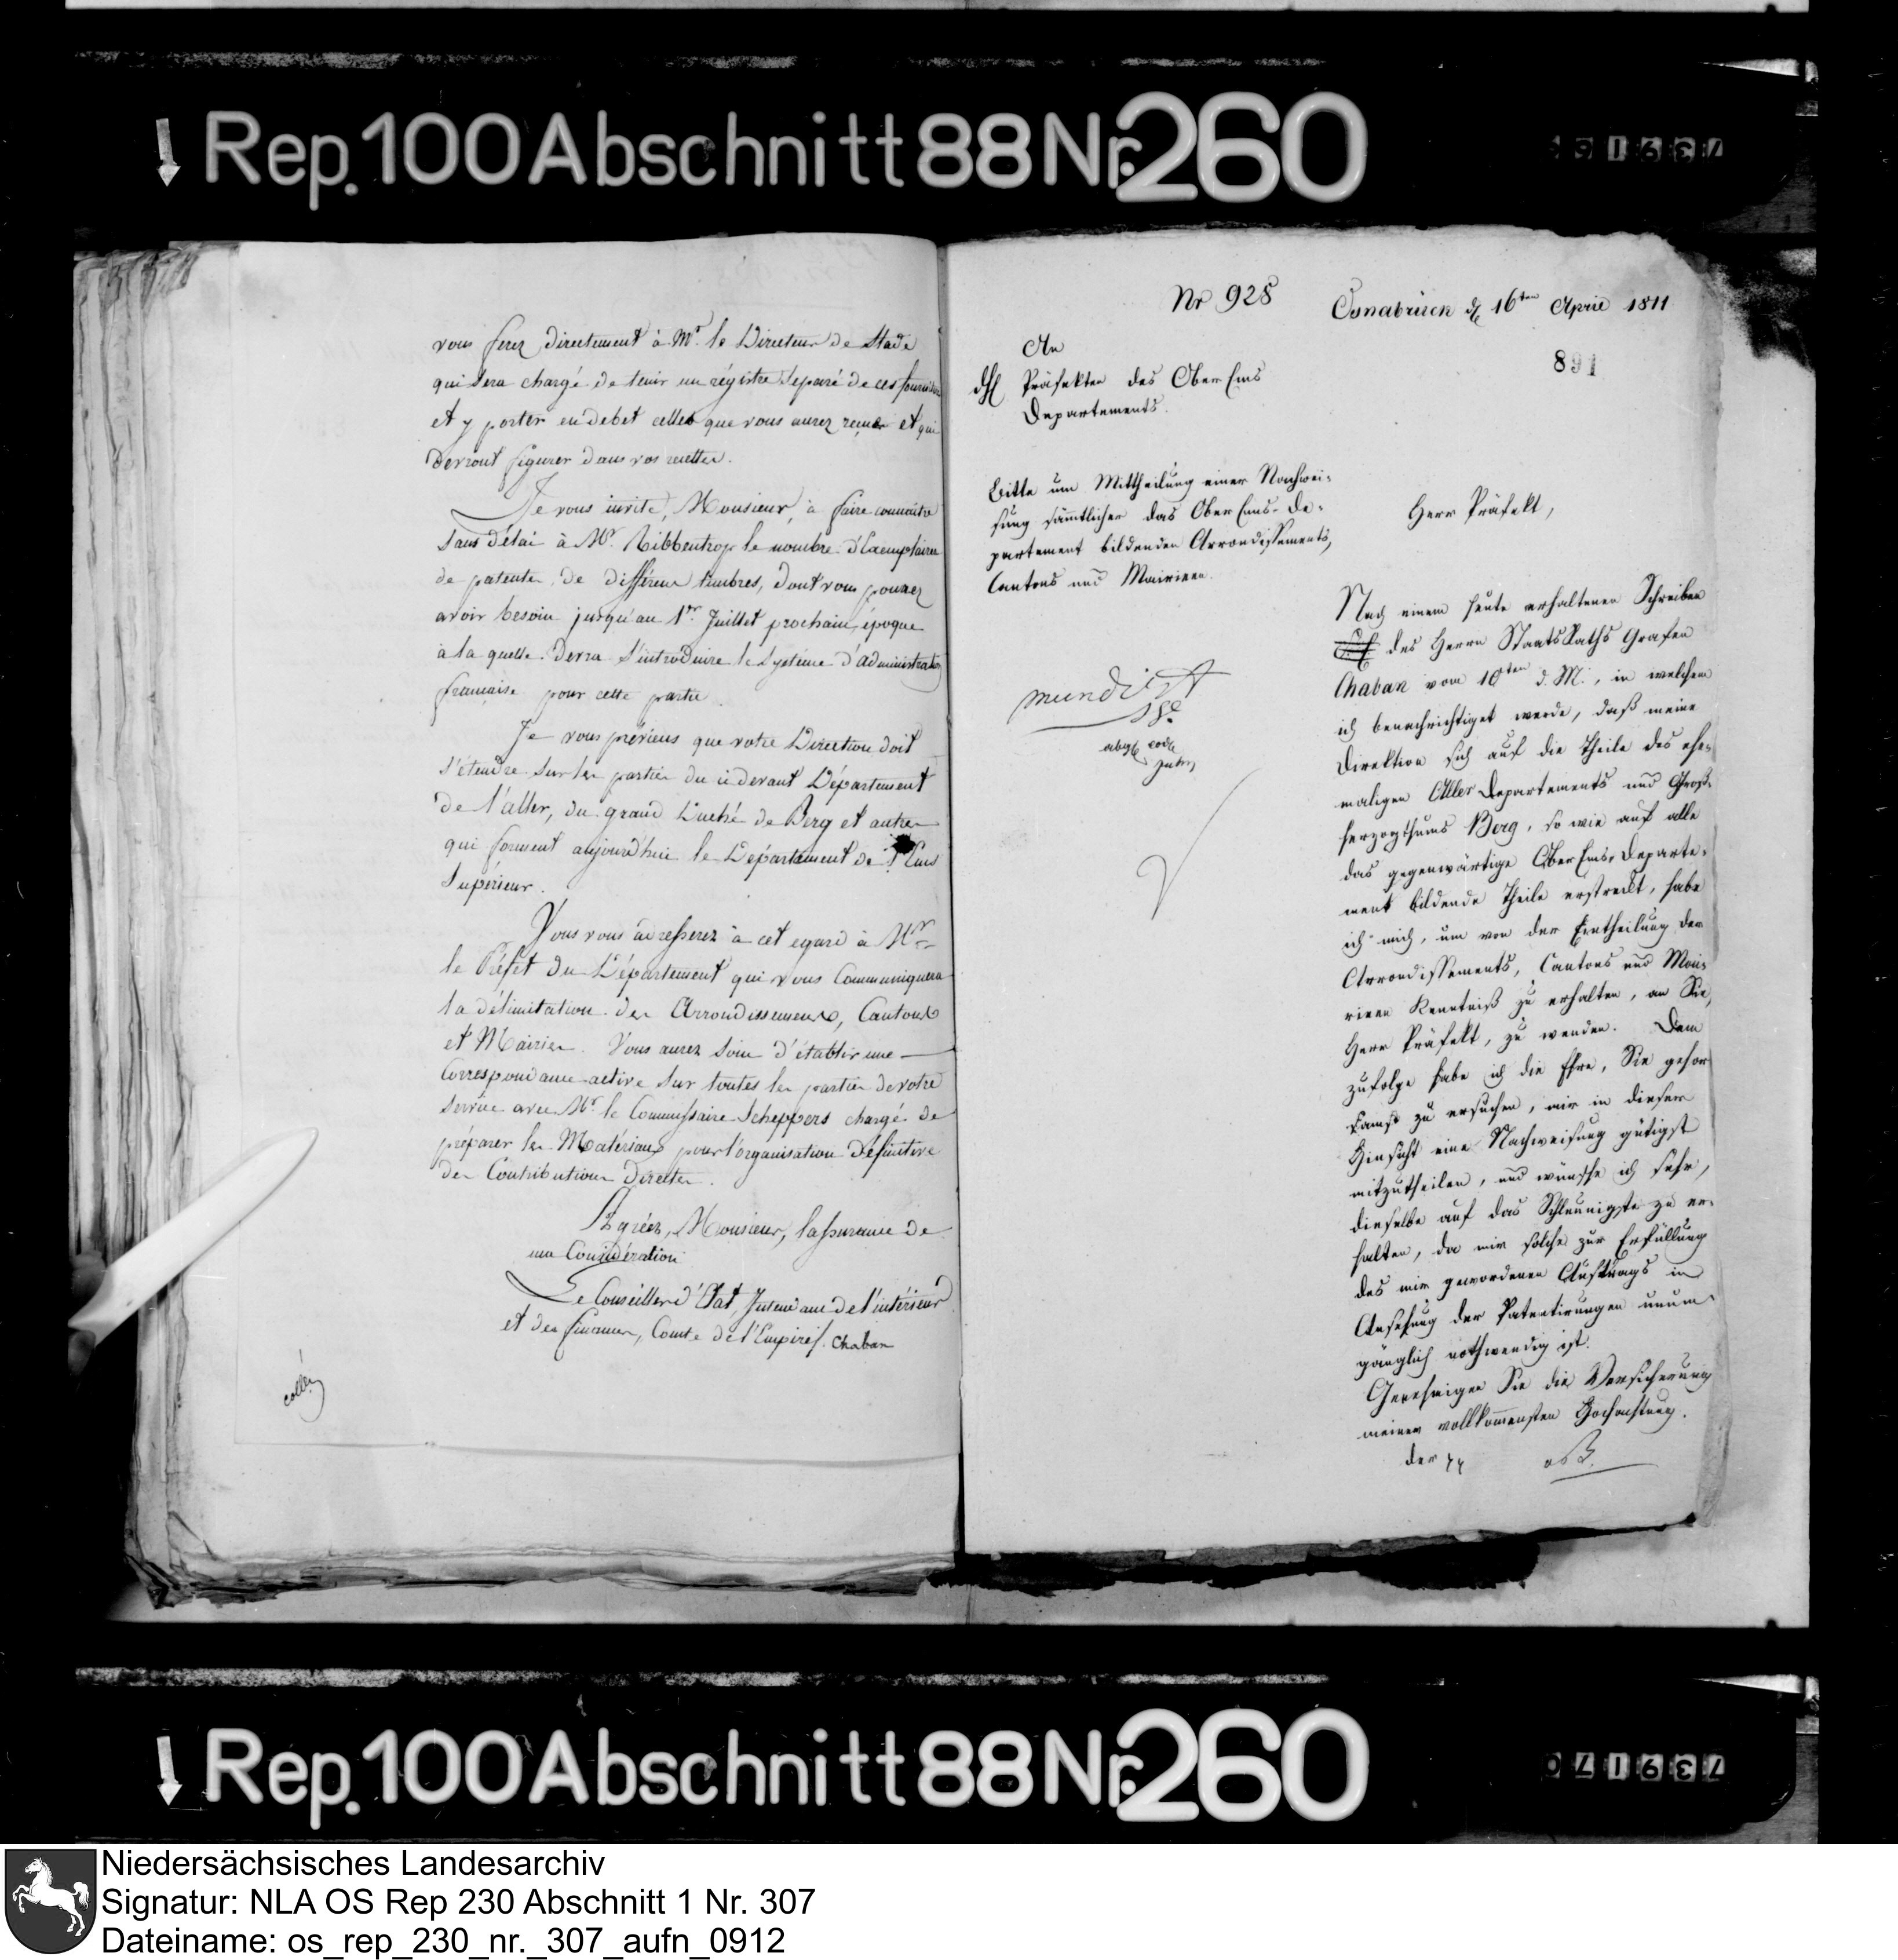 Rep. 100 Abschnitt 88 Nr. 260
vous ferez directement à Mr. le Directeur de Stade
qui sera chargé de tenir un régistre separé de ces
et y porter en debet celles que vous aurez reçues et qui
devront figurer dans vos recettes.
Je vous invite, Monsieur, à faire connoitre
sans délai à Mr. Ribbentrop le nombre d'Exemplaires
de patentes de différens timbres, dont vous pouvez
avoir besoin jusqu'au 1er Juillet prochain, époque
à la quelle devra s'introduire le Système d'administration
française pour cette partie
Je vous préviens que votre Direction doit
s'étendre sur les parties du cidevant Département
de l'aller, du grand Duché de Berg et autres
qui forment aujourd'hui le Département de l'Ems
Supérieur.
Vous vous adresserez à cet egard à Mr
le Préfet du Département qui vous communiquera
la délimitation des Arrondissemens, Cantons
et Mairies. Vous aurez soin d'établir une
Correspondance active sur toutes les parties de votre
service avec Mr. le Commissaire Scheppers chargé de
préparer les Matériaux pour l'organisation définitive
des Contributions directes.
Agréez, Monsieur, l'assurance de
ma Considération
Le Conseiller d'Etat, Intendant de l'intérieur
et des finances, Comte de l'Empire /. Chaban
Nr 928
Osnabrück d 16ten April 1811
891
An
Präfekten des Ober Ems
Departements.
Bitte um Mittheilung einer Nachwei-
sung sämmtlicher das Ober Ems-De-
partement bildenden Arrondissements,
Cantons und Mairieen.
mundirt
Herr Präfekt,
Nach einem heute erhaltenen Schreiben
des Herrn StaatsRaths Grafen
Chaban vom 10ten d. M., in welchem
ich benachrichtiget werde, daß meine
Direktion sich auf die Theile des ehe-
maligen Aller Departements und Groß-
herzogthums Berg, so wie auf alle
das gegenwärtige Ober Ems-Departe-
ment bildende Theile erstreckt, habe
ich mich, um von der Eintheilung der
Arrondissements, Cantons und Mai-
rieen Kenntniß zu erhalten, an Sie,
Herr Präfekt, zu wenden. Dem
zufolge habe ich die Ehre, Sie gehor-
samst zu ersuchen, mir in dieser
Hinsicht eine Nachweisung gütigst
mitzutheilen, und wünsche ich sehr,
dieselbe auf das Schleunigste zu er-
halten, da mir solche zur Erfüllung
des mir gewordenen Auftrags in
Ansehung der Patentirungen unum-
gänglich nothwendig ist.
Genehmigen Sie die Versicherung
meiner vollkommensten Hochachtung.
der
Rep. 100 Abschnitt 88 Nr. 260
Niedersächsisches Landesarchiv
Signatur: NLA OS Rep 230 Abschnitt 1 Nr. 307
Dateiname: os_rep_230_nr._307_aufn_0912